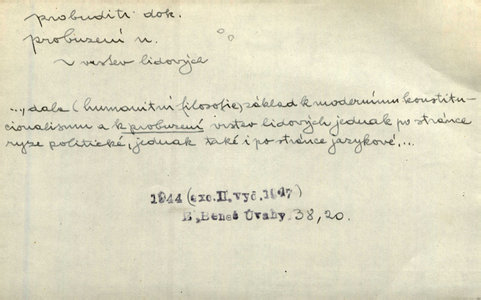 probuditi dok.
probuzení n.
~ vrstev lidových
..., dala (humanitní filosofie) základ k modernímu konstitu-
cionalismu a k probuzení vrstev lidových jednak po stránce
ryze politické, jednak také i po stránce jazykové,...
1944 (exc.II.vyč.1947)
E.Beneš Úvahy 38,20.